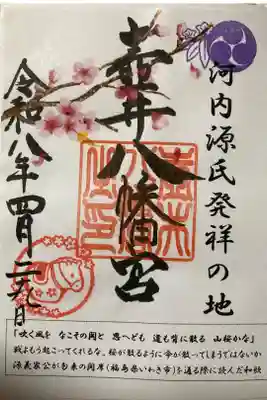 河内源氏発祥の地
壺井八幡宮
令和八年四月日
「吹く風を なこその関と 思へども 道も背に散る 山桜かな」
戦よもう起こってくれるな。桜が散るように命が散ってしまうではないか
源義家公が勿来の関(福島県いわき市)を通る際に読んだ和歌